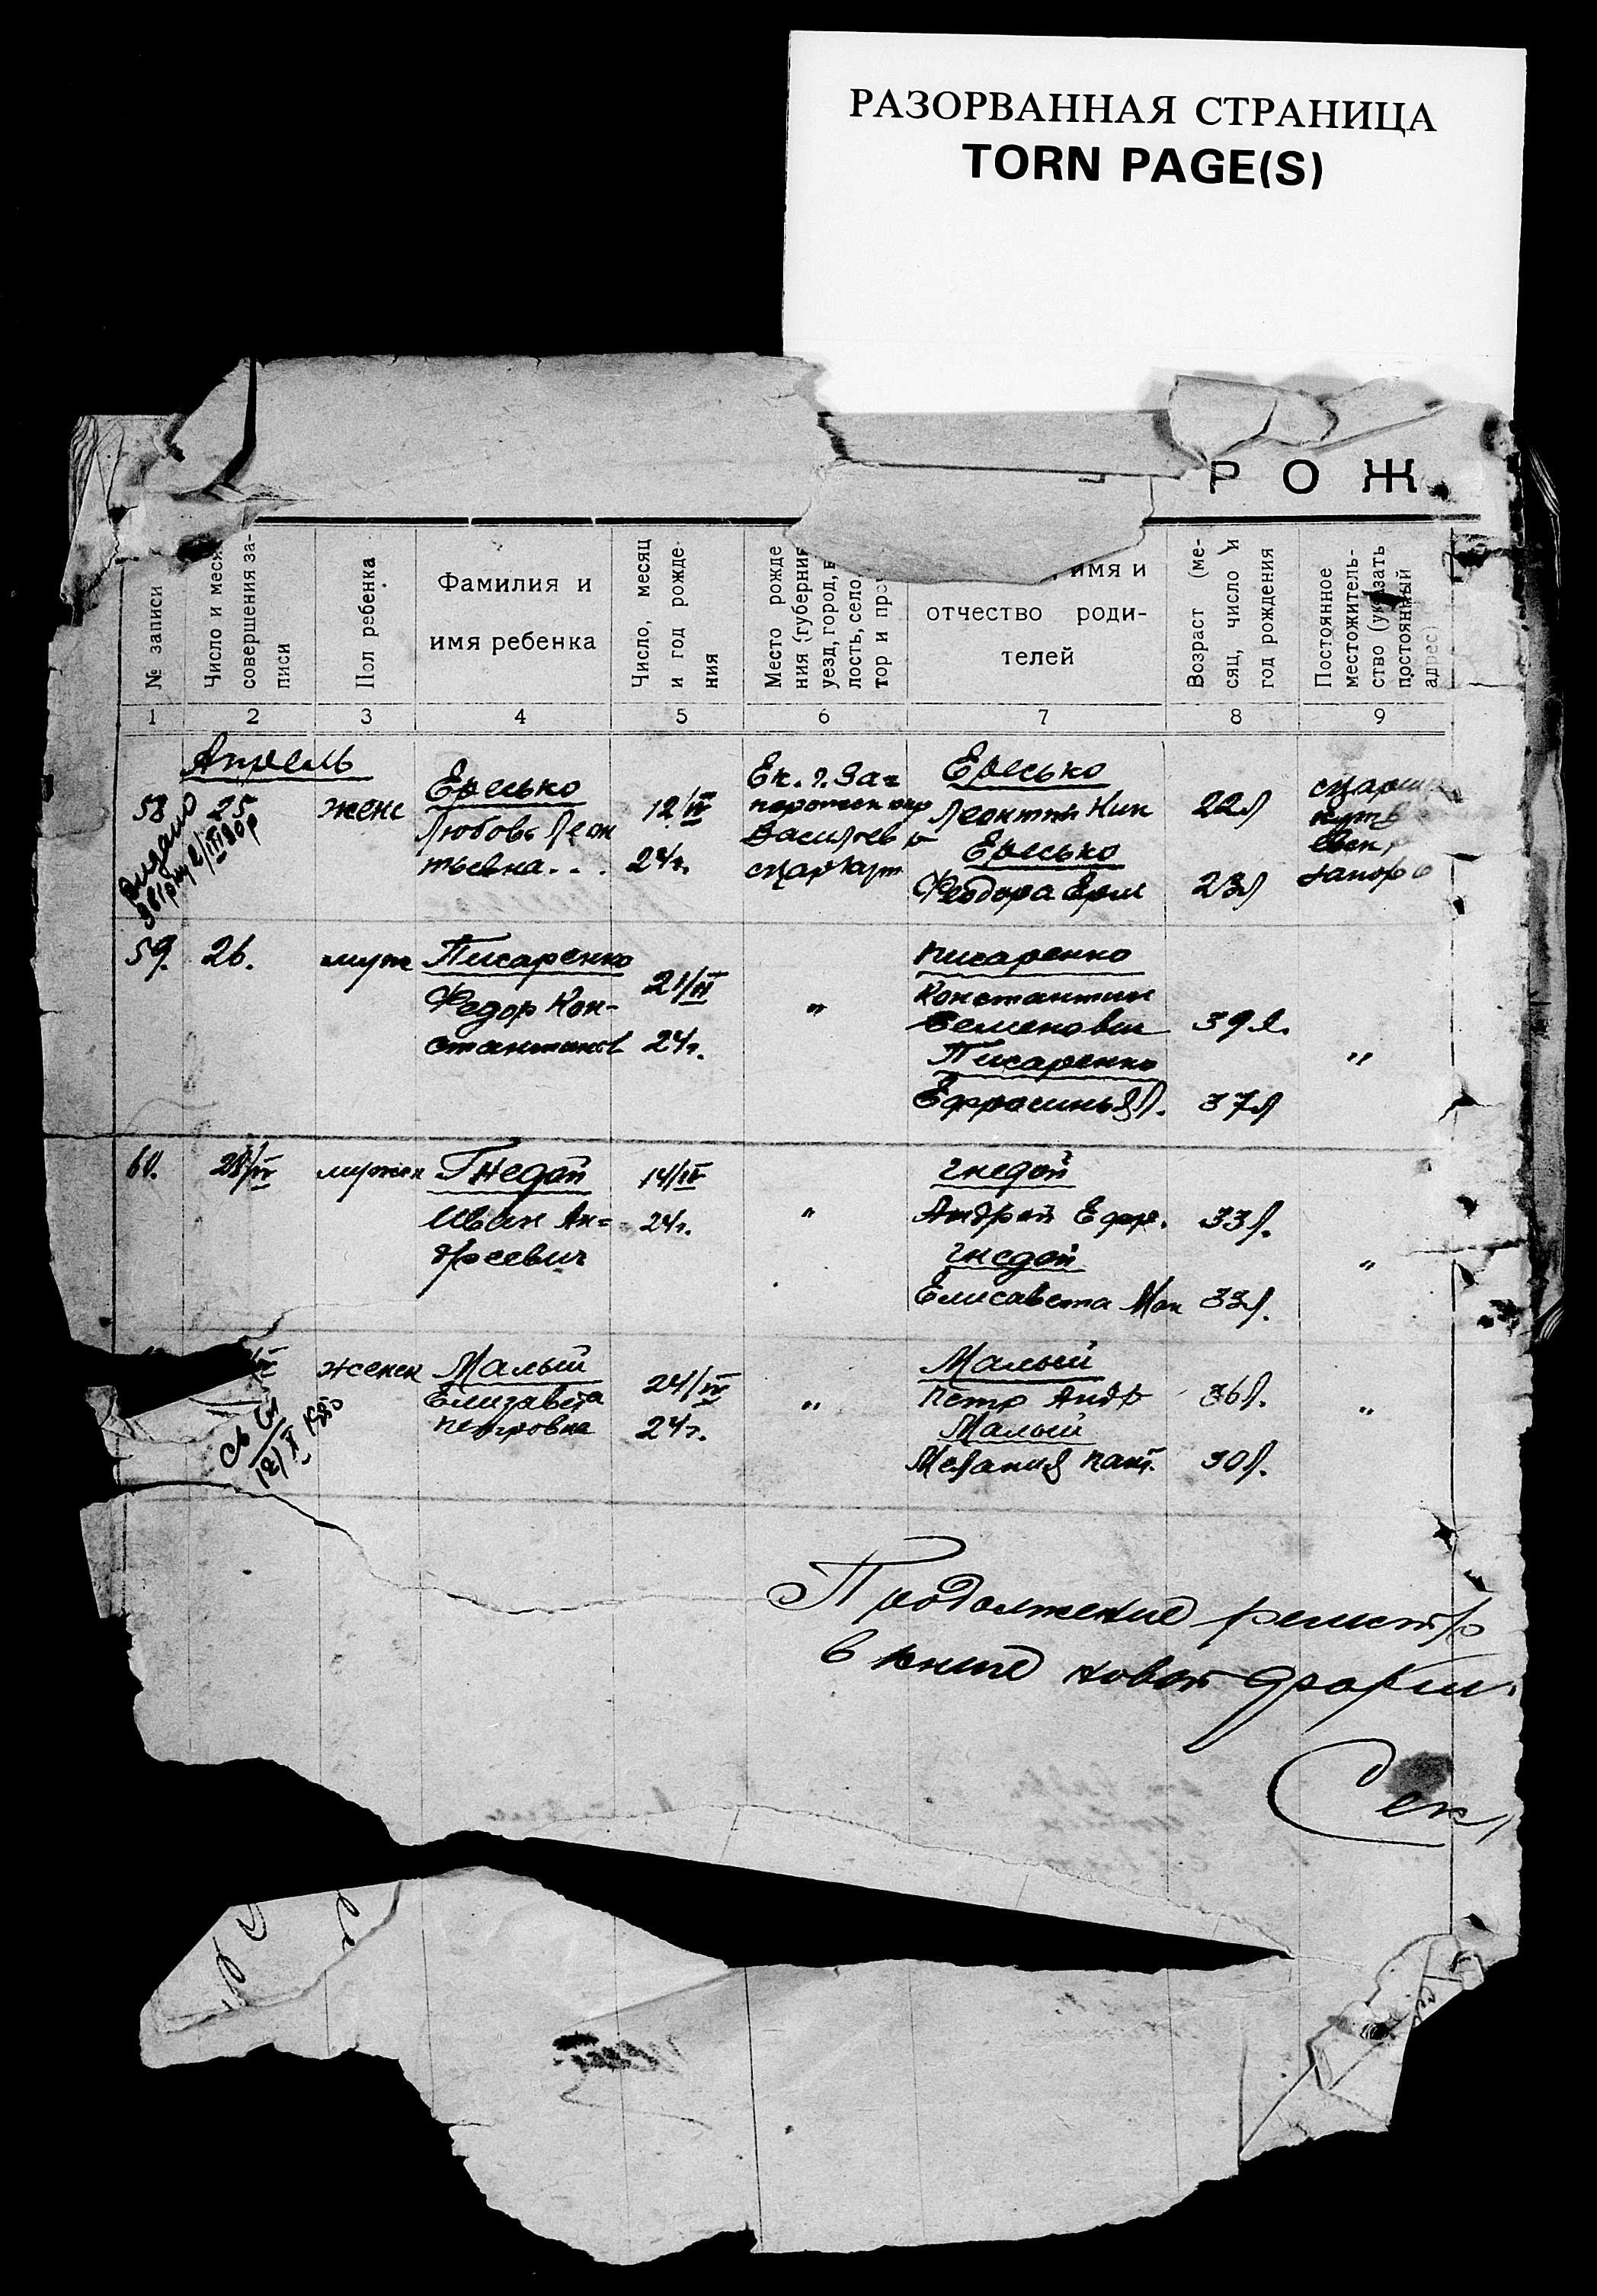 РАЗОРВАННАЯ СТРАНИЦА
TORN PAGE(S)
Р О Ж
№ записи
Число и меся
совершения за-
писи
Пол ребенка
Фамилия и
имя ребенка
Число, месяц
и год рожде-
ния
Место рожде
ния (губерния
уезд, город, в
лость, село,
тор и проч
имя и
отчество роди-
телей
Возраст (ме-
сяц, число и
год рождения
Постоянное
местожитель-
ство (указать
постоянный
адрес)
1 2 3 4 5 6 7 8 9
Апрель
58 25 женс
Ересько
Любовь Леон
тьевна...
12/IV
24г.
Ек. г. За=
Ересько
Леонтий Ник 22л
Ересько
Феодора 23л
59. 26. муж
Писаренко
Федор Кон-
стантинов
21/IV
24г.
"
Писаренко
Константин
Семенович 39л.
Писаренко
Ефросинья 37л
"
60. 28/IV мужск
Гнедой
Иван Ан=
дреевич
14/IV
24г.
"
Гнедой
Андрей Ефр. 33л.
Гнедой
Елисавета 33л.
"
женск
Малый
Елизавета
Петровна
24/IV
24г.
"
Малый
Петр Андр 36л.
Малый
Мелания Пан. 30л.
"
Продолжение регистр
в книге новой формы
Сек